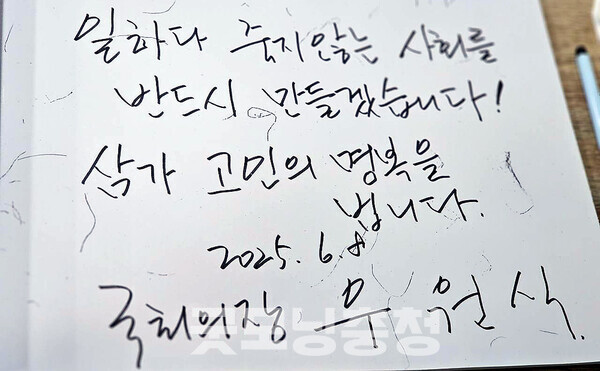 일하다 죽지않는 사회를
반드시 만들겠습니다!
삼가 고인의 명복을
빕니다.
2025. 6. 8
국회의장 우 원 식.
굿모닝충청